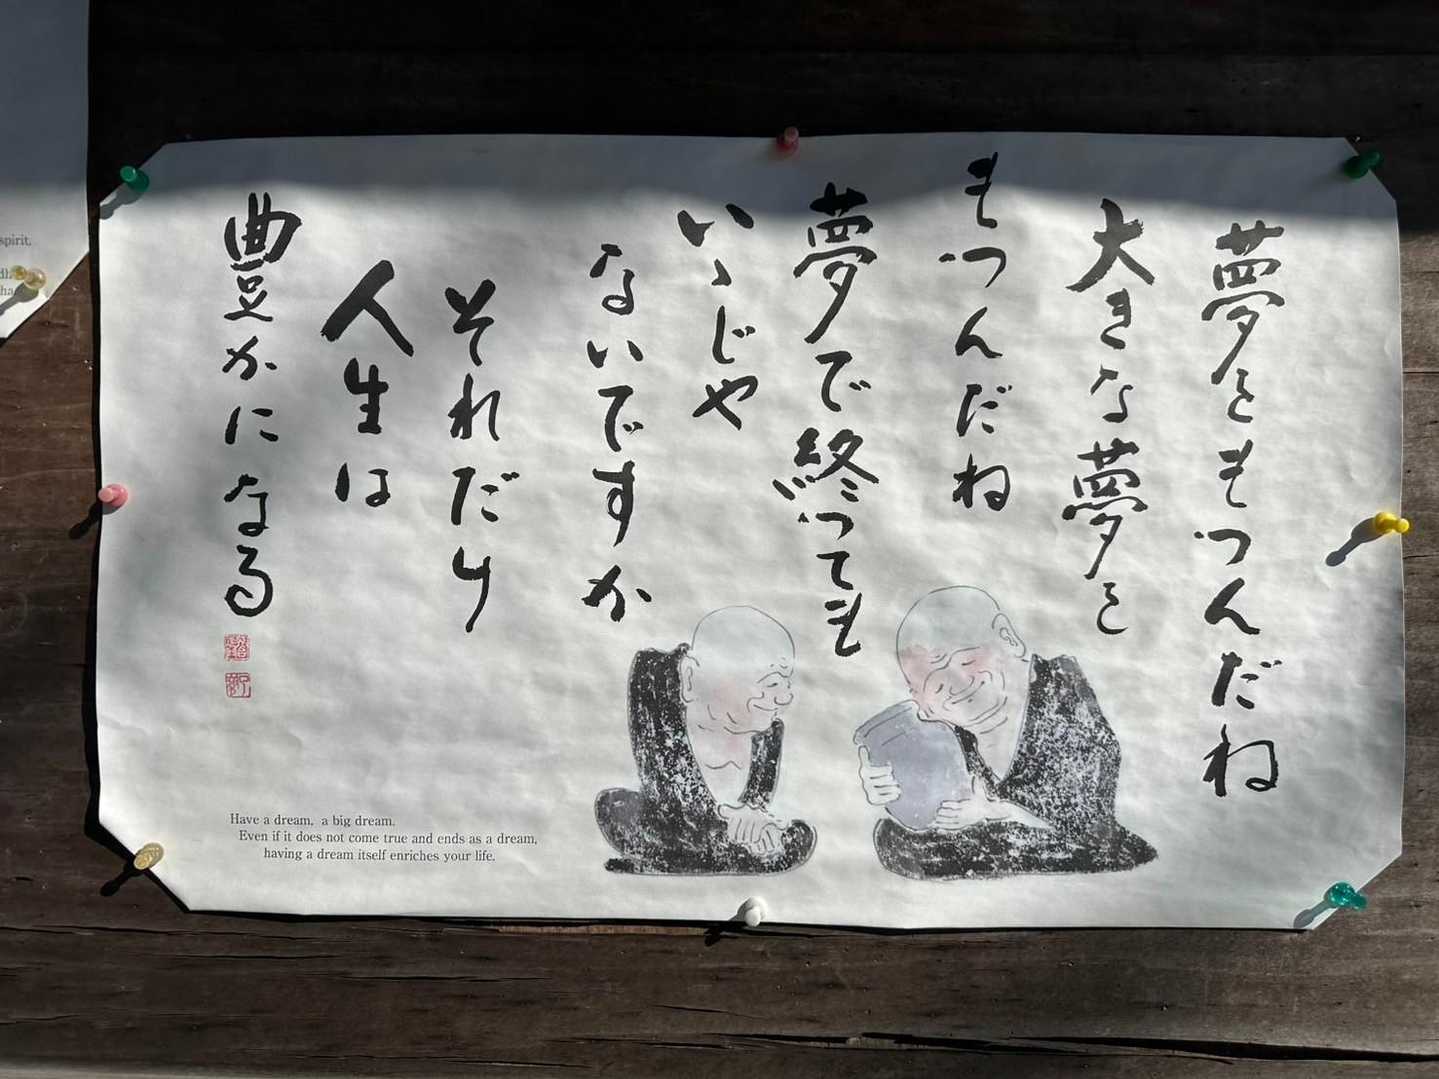 夢をもつんだね
大きな夢を
もつんだね
夢で終っても
いゝじゃ
ないですか
それだけ
人生は
豊かになる
Have a dream, a big dream.
Even if it does not come true and ends as a dream,
having a dream itself enriches your life.
spirit.